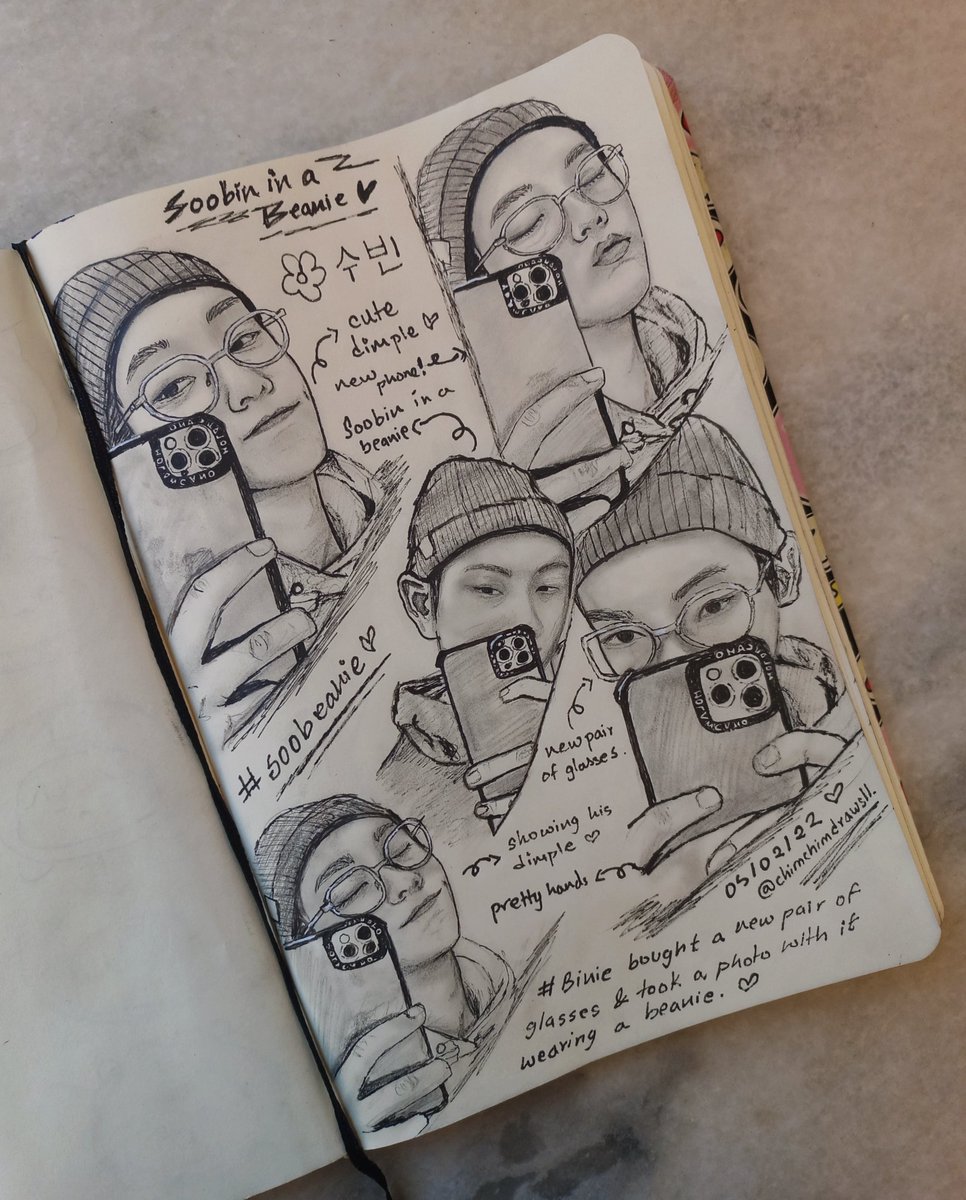 Soobin in a
Beanie
수빈
cute
dimple
new phone!
Soobin in a
beanie
#soobeanie
new pair
of glasses.
showing his
dimple
pretty hands
05/02/22
@chimchimdrawsll.
#Binie bought a new pair of
glasses & took a photo with it
wearing a beanie.